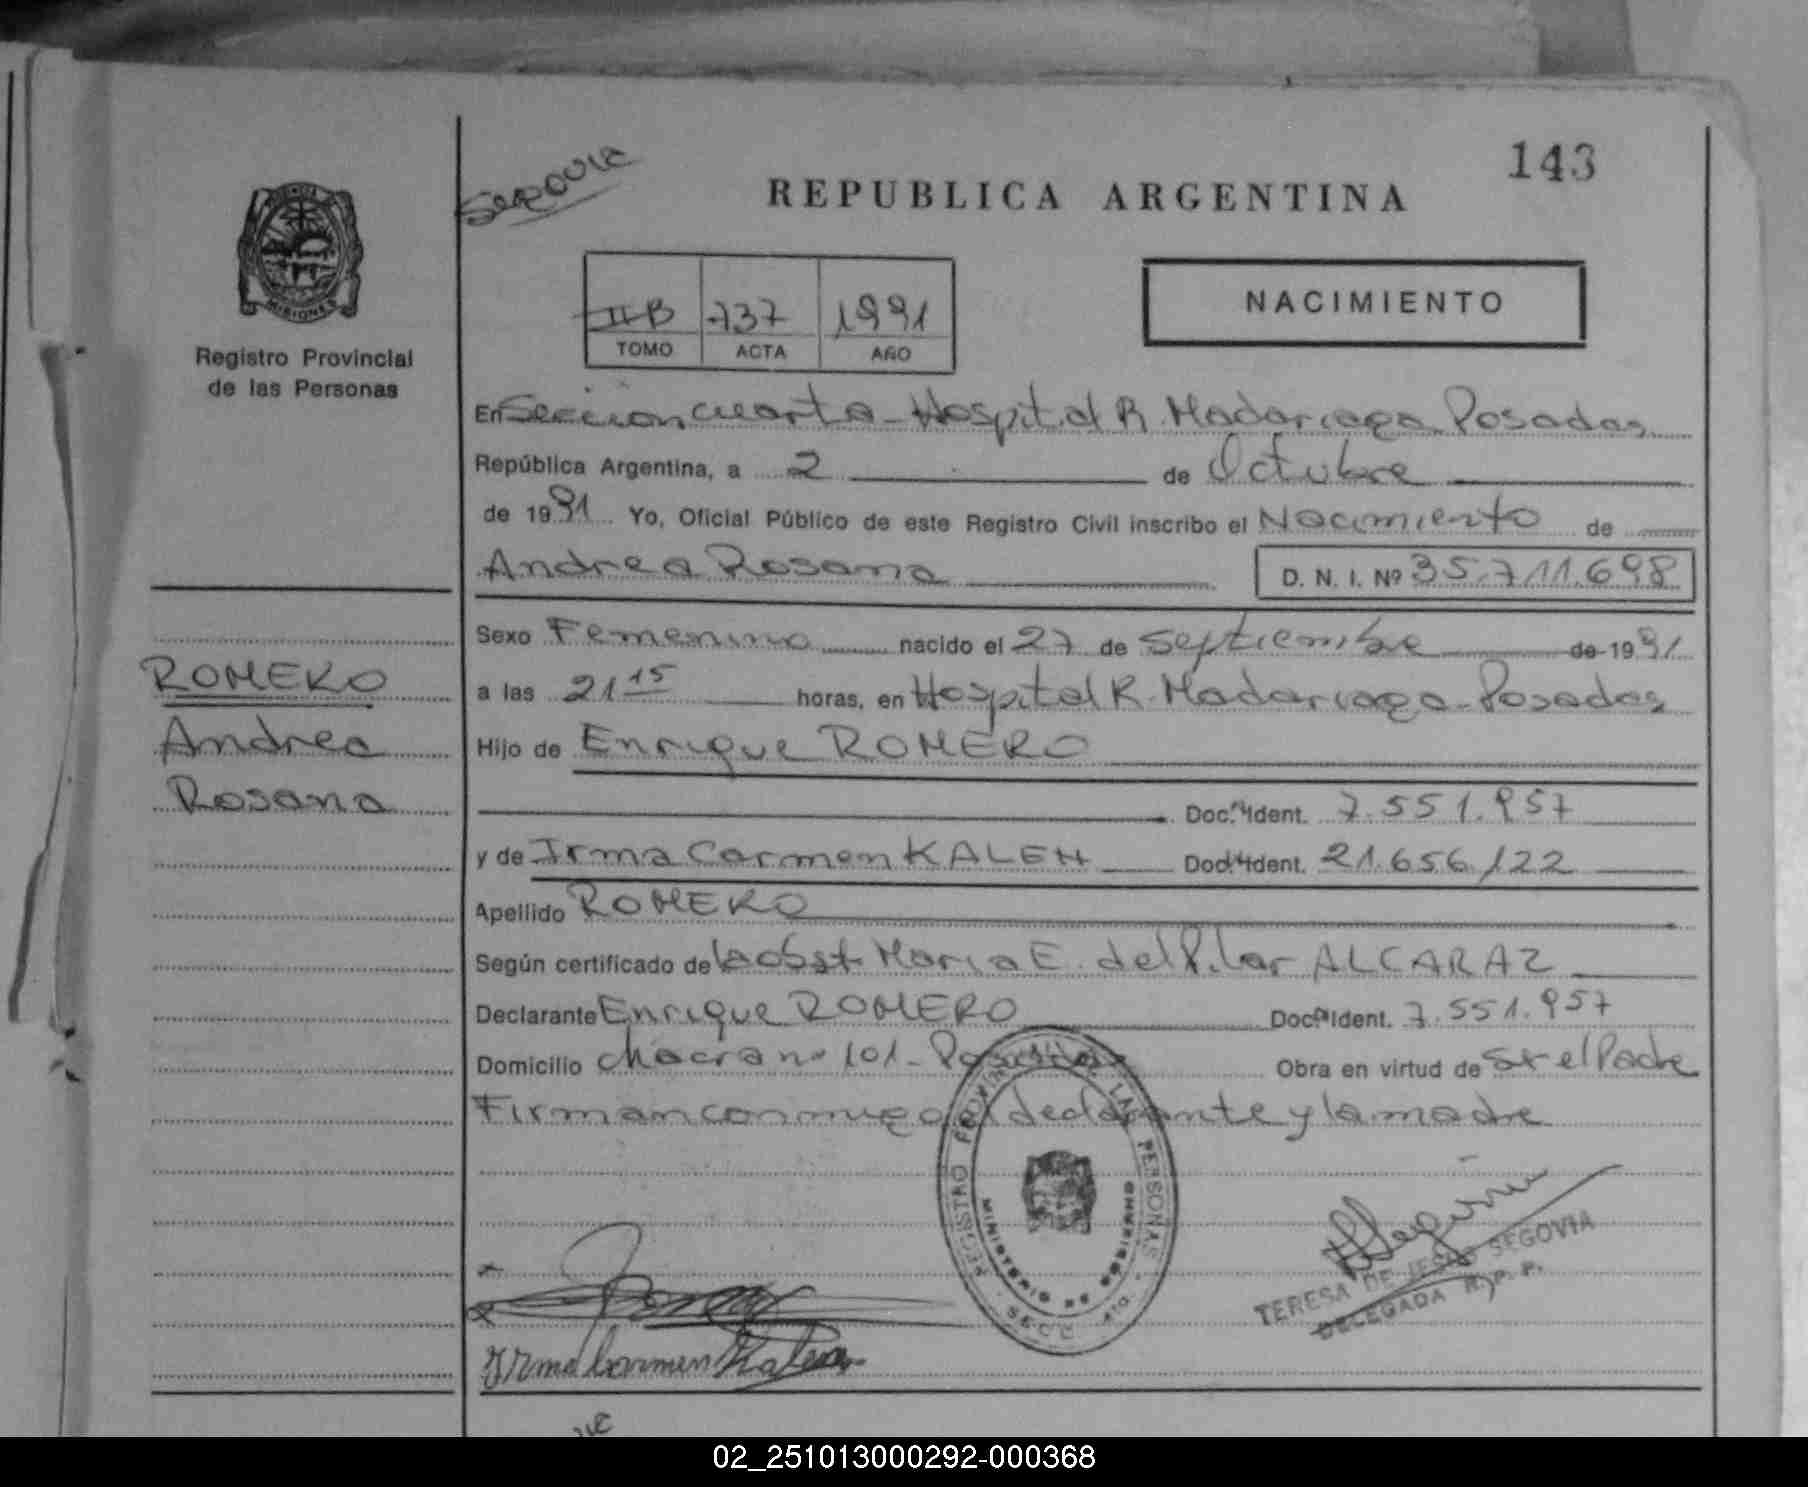 143
SEGOVIA
REPUBLICA ARGENTINA
MISIONES
Registro Provincial
de las Personas
II B 737 1991
TOMO ACTA AÑO
NACIMIENTO
En Seccion cuarta - Hospital R. Madariaga Posadas
República Argentina, a 2 de Octubre
de 1991 Yo, Oficial Público de este Registro Civil inscribo el Nacimiento de
Andrea Rosana D. N. I. Nº 35.711.698
Sexo Femenino nacido el 27 de Septiembre de 1991
a las 21 15 horas, en Hospital R. Madariaga - Posadas
Hijo de Enrique ROMERO
Doc. Ident. 7.551.957
y de Irma Carmen KALEN Doc. Ident. 21.656.122
Apellido ROMERO
Según certificado de la obst. Maria E. del Pilar ALCARAZ
Declarante Enrique ROMERO Doc. Ident. 7.551.957
Domicilio chacra nº 101 - Posadas Obra en virtud de ser el Padre
Firman conmigo el declarante y la madre
ROMERO
Andrea
Rosana
REGISTRO PROVINCIAL DE LAS PERSONAS
MINISTERIO DE GOBIERNO
SECC. 4ta.
TERESA DE JESUS SEGOVIA
DELEGADA R. P. P.
Irma Carmen Kalen
02_251013000292-000368